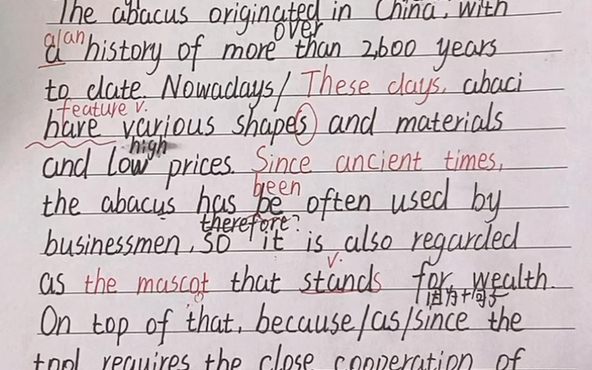 The abacus originated in China, with
over
a/an history of more than 2,600 years
to date. Nowadays/ These days, abaci
feature v.
have various shapes and materials
high
and low prices. Since ancient times,
been
the abacus has be often used by
therefore?
businessmen, so it is also regarded
v.
as the mascot that stands for wealth.
因为+句子
On top of that, because/as/since the
tool requires the close cooperation of